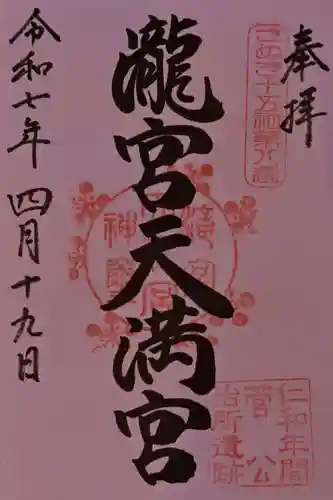 奉拝
瀧宮天満宮
令和七年 四月十九日
仁和年間
菅公
台所遺跡